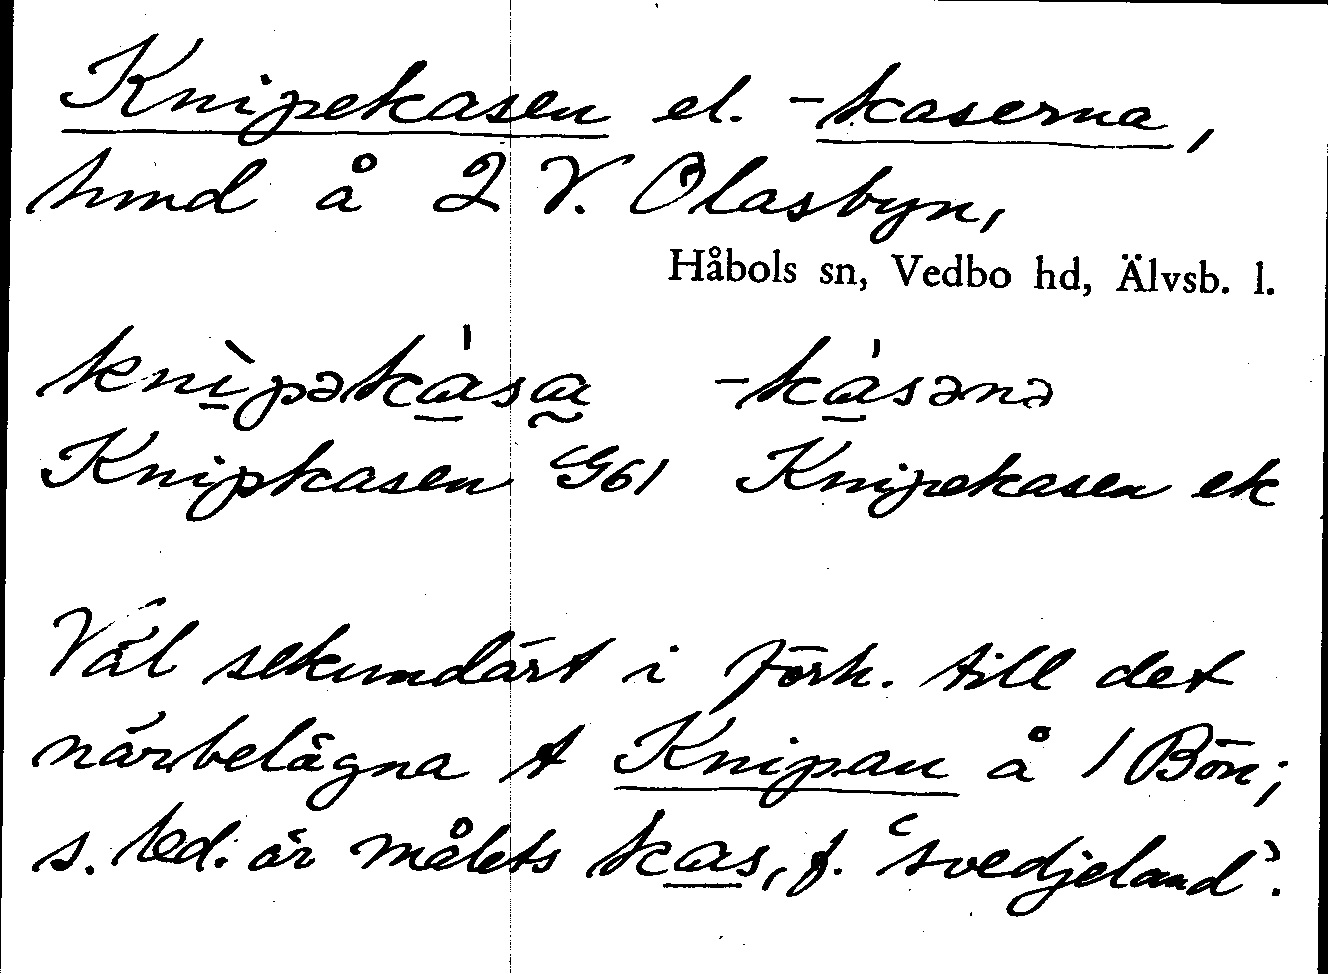 Knipekasen el. -kaserna,
hmd å 2 V. Olasbyn,
Håbols sn, Vedbo hd, Älvsb. l.
knìpəká̱sa̰ -ká̱sənə
Knipkasen G61 Knipekasen ek
Väl sekundärt i förh. till det
närbelägna t Knipan å 1 Bön;
s. led. är målets kas, f. ‘svedjeland’.